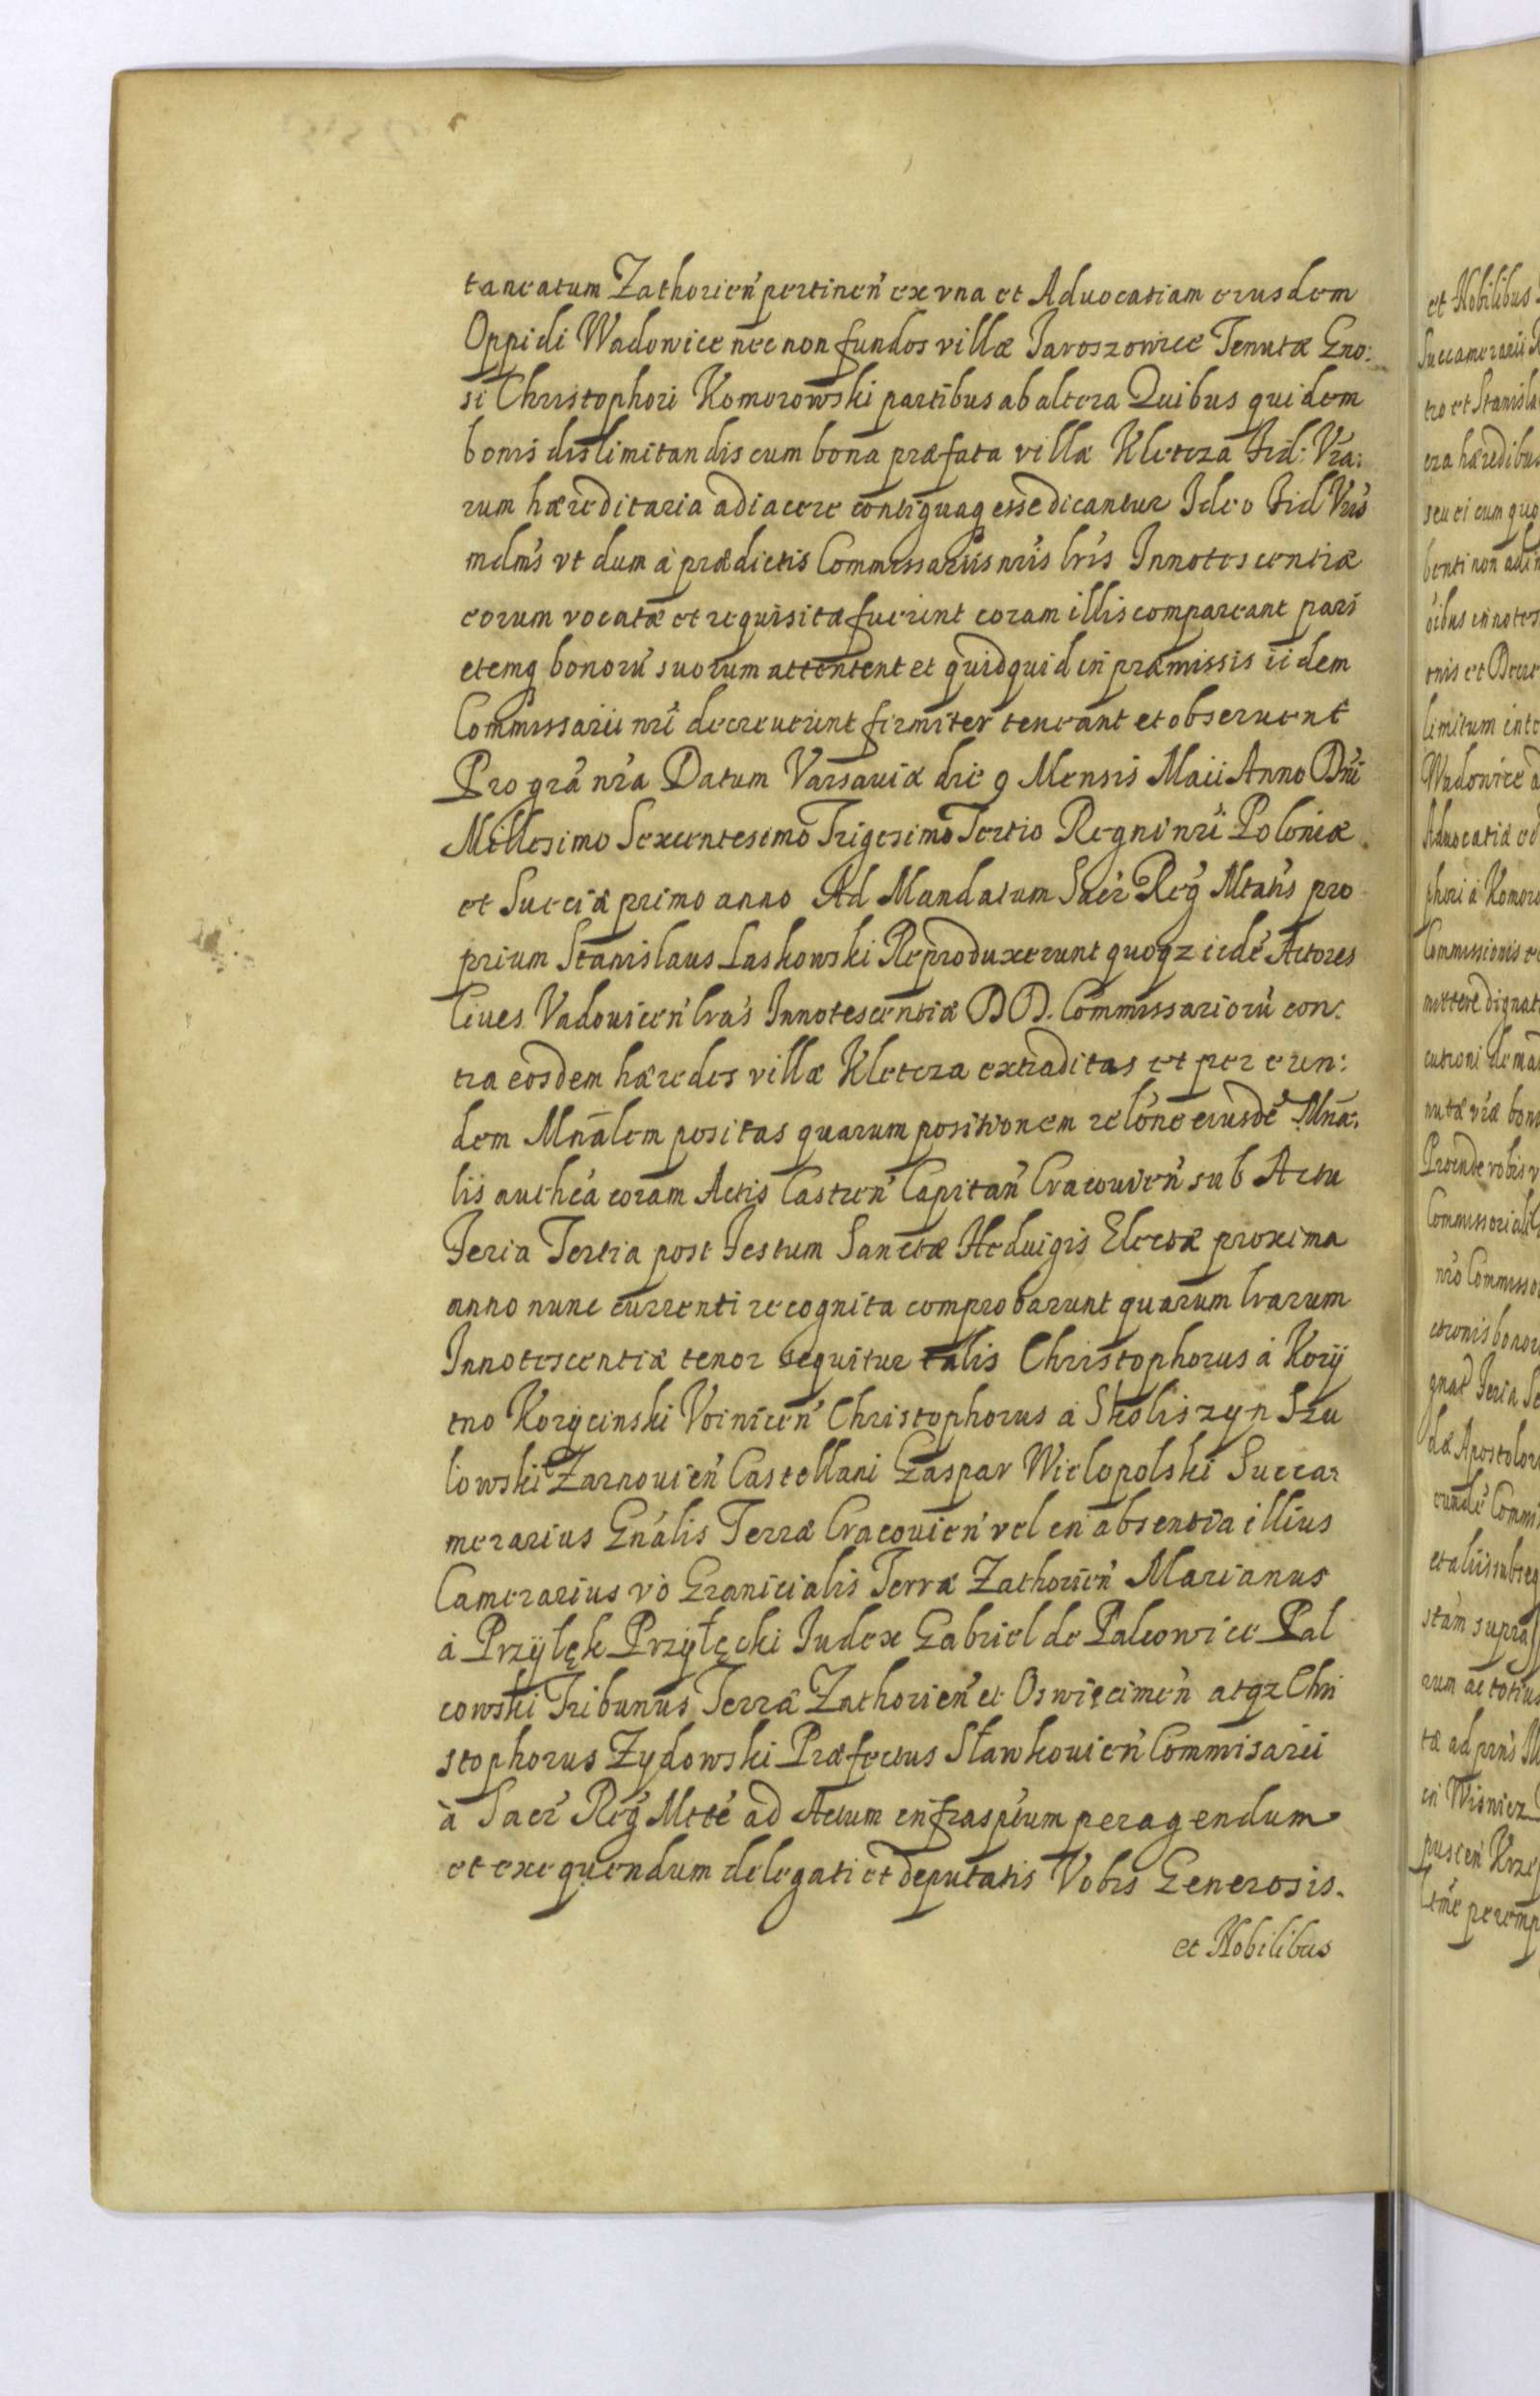 taneatum Zathorień pertineń ex vna et Aduocatiam eiusdem
Oppidi Wadowice nec non fundos villæ Jaroszowice Tenutæ Gno:
si Christophori Komorowski partibus ab altera Quibus quidem
bonis dislimitandis cum bona præfata villæ Kletcza Fid: Vra:
rum hæreditaria adiacere contiguaq esse dicantur Ideo Fid Vris
mdms vt dum à prædictis Commissariis nris lris Innotescentiæ
eorum vocatæ et requisitæ fuerint coram illis compareant pars
etemq bonorū suorum attentent et quidquid in præmissis iidem
Commissarii nri decreuerint firmiter teneant et obseruent
Pro gra nra Datum Varsauiæ die 9 Mensis Maii Anno Dni
Millesimo Sexcentesimo Trigesimo Tertio Regni nri Poloniæ
et Sueciæ primo anno Ad Mandatum Sacr Reg Mtatis pro
prium Stanislaus Laskowski Reproduxerunt quoqz iidē Actores
Ciues Vadouicen lras Innotescentiæ D D. Commissariorū con:
tra eosdem hæredes villæ Kletcza extraditas et per eun:
dem Mnālem positas quarum positionem relōne eiusdē Mna:
lis authca coram Actis Castren Capitan Cracouien sub Actu
Feria Tertia post Festum Sanctæ Heduigis Electæ proxima
anno nunc currenti recognita comprobarunt quarum lrarum
Innotescentiæ tenor sequitur talis Christophorus à Korÿ
tno Korÿcinski Voinicen Christophorus à Skoliszyn Szu
lowski Zarnouien Castellani Gaspar Wielopolski Succa:
merarius Gnalis Terræ Cracouien vel in absentia illius
Camerarius vò Granicialis Terræ Zathorien Marianus
à Przÿłęk Przÿłęcki Iudex Gabriel de Palcowice Pal
cowski Tribunus Terræ Zathorien et Oswięcimen atqz Chri
stophorus Zydowski Præfectus Sławkouien Commisarii
à Sacr Reg Mtte ad Actum infrasptum peragendum
et exequendum delegati et deputatis Vobis Generosis.
et Nobilibus